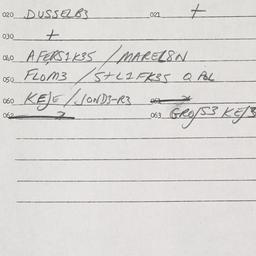 020 DUSSELB3 021 +
030 +
040 AFERS1K35 / MAREL8N
050 FLOM3 / S+L1FK35 Q POL
060 KEJE / JOND3-R3 061
062 063 GRO/S3 KE/3